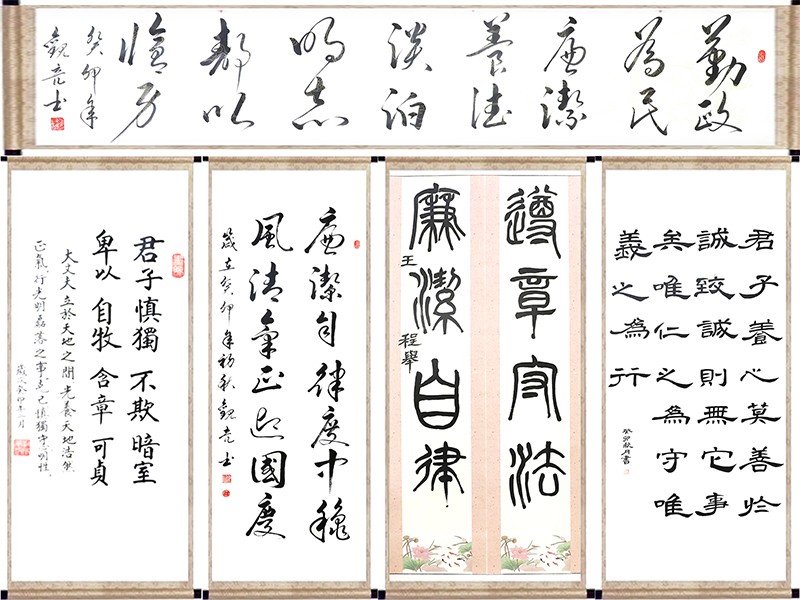 勤政
為民
廉潔
養德
淡泊
明志
靜以
癸卯年
觀亮书
君子養心莫善於
誠致誠則無它事
矣唯仁之為守唯
義之為行
癸卯秋月書
遵章守法
廉潔自律
王程舉
廉潔自律度中穐
風清氣正迎國慶
歲在癸卯年初秋觀亮书
君子慎獨 不欺暗室
卑以自牧 含章可貞
大丈夫立於天地之間光養天地浩然
正氣行光明磊落之事克己慎獨守心明性
歲次癸卯年 月